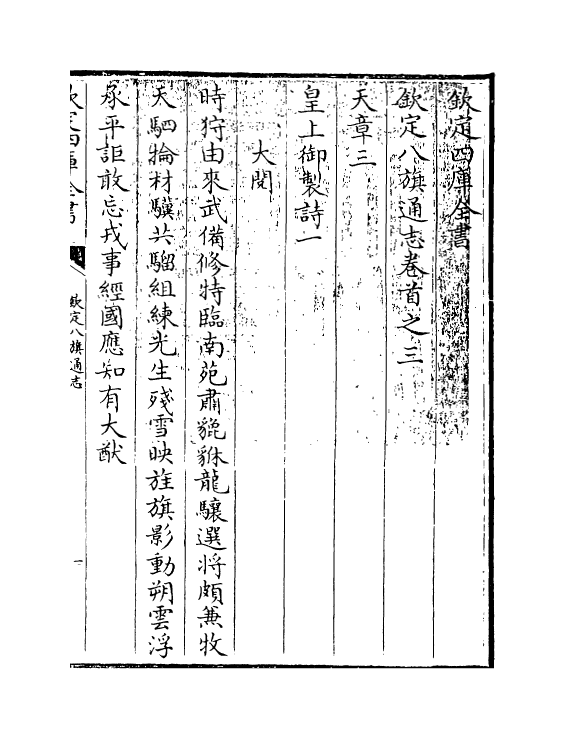 欽定四庫全書
欽定八旗通志卷首之三
天章三
皇上御製詩一
大閱
時狩由來武備修特臨南苑肅貔貅龍驤選將頗兼牧
天駟掄材驥共騮組練光生殘雪映旌旗影動朔雲浮
承平詎敢忘戎事經國應知有大猷
欽定四庫全書
欽定八旗通志
一